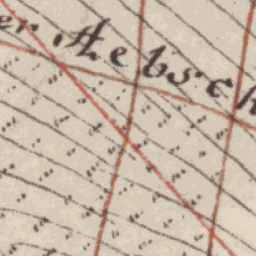 er Hebsch